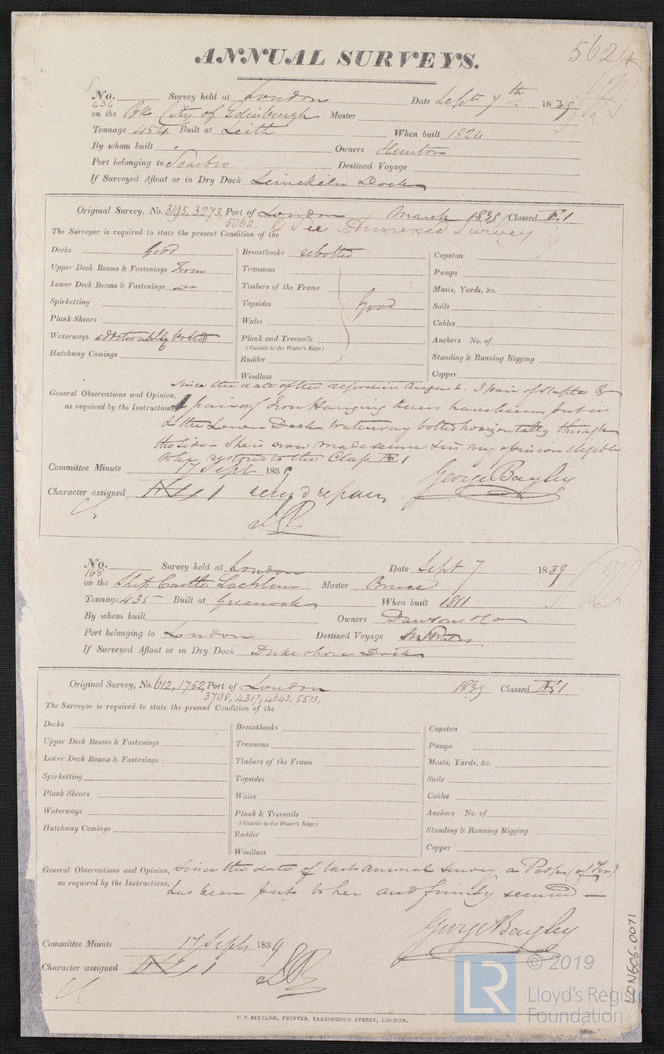 ANNUAL SURVEYS.
5624
No. 434 Survey held at London Date Sept 7th 1839
on the Bk City of Edinburgh Master
Tonnage 454 Built at Leith When built 1824
By whom built Owners Hunton
Port belonging to Scarbro Destined Voyage
If Surveyed Afloat or in Dry Dock Limekiln Dock
Original Survey, No. 3195, 3273, Port of London March 1839 Classed Æ 1
5062 See Annexed Survey
The Surveyor is required to state the present Condition of the
Decks Good
Upper Deck Beams & Fastenings From
Lower Deck Beams & Fastenings
Spirketting
Plank Shears
Waterways additionally bolted
Hatchway Comings
Breasthooks rebolted
Transoms
Timbers of the Frame
Topsides Good
Wales
Plank and Treenails
(Outside to the Water's Edge.)
Rudder
Windlass
Capstan
Pumps
Masts, Yards, &c.
Sails
Cables
Anchors No. of
Standing & Running Rigging
Copper
General Observations and Opinion, Since the date of the report in August 1 pair of staple &
as required by the Instructions pair of Iron Hanging knees have been put in
& the Lower Deck Waterway bolted horizontally through
the side - She is now made secure & is in my opinion eligible
to be restored to the Class Æ 1
Committee Minute 17 Sept 1839 George Bayley
Character assigned Æ 1
No. 168 Survey held at London Date Sept 7 1839
on the Ship Castle Lachlan Master Bruce
Tonnage 435 Built at Greenock When built 1811
By whom built Owners Dawson & Co
Port belonging to London Destined Voyage
If Surveyed Afloat or in Dry Dock Dukeshore Dock
Original Survey, No. 612, 1752, Port of London 1839 Classed Æ 1
3708, 4317, 4643, 5513,
The Surveyor is required to state the present Condition of the
Decks
Upper Deck Beams & Fastenings
Lower Deck Beams & Fastenings
Spirketting
Plank Shears
Waterways
Hatchway Comings
Breasthooks
Transoms
Timbers of the Frame
Topsides
Wales
Plank & Treenails
(Outside to the Water's Edge.)
Rudder
Windlass
Capstan
Pumps
Masts, Yards, &c.
Sails
Cables
Anchors No. of
Standing & Running Rigging
Copper
General Observations and Opinion, Since the date of last annual survey a Poop (of Fir)
as required by the Instructions, has been put to her and firmly secured -
George Bayley
Committee Minute 17 Sept 1839
Character assigned Æ 1
LON606-0071
© 2019
LR Lloyd's Register
Foundation
PRINTER, FARRINGDON STREET, LONDON.